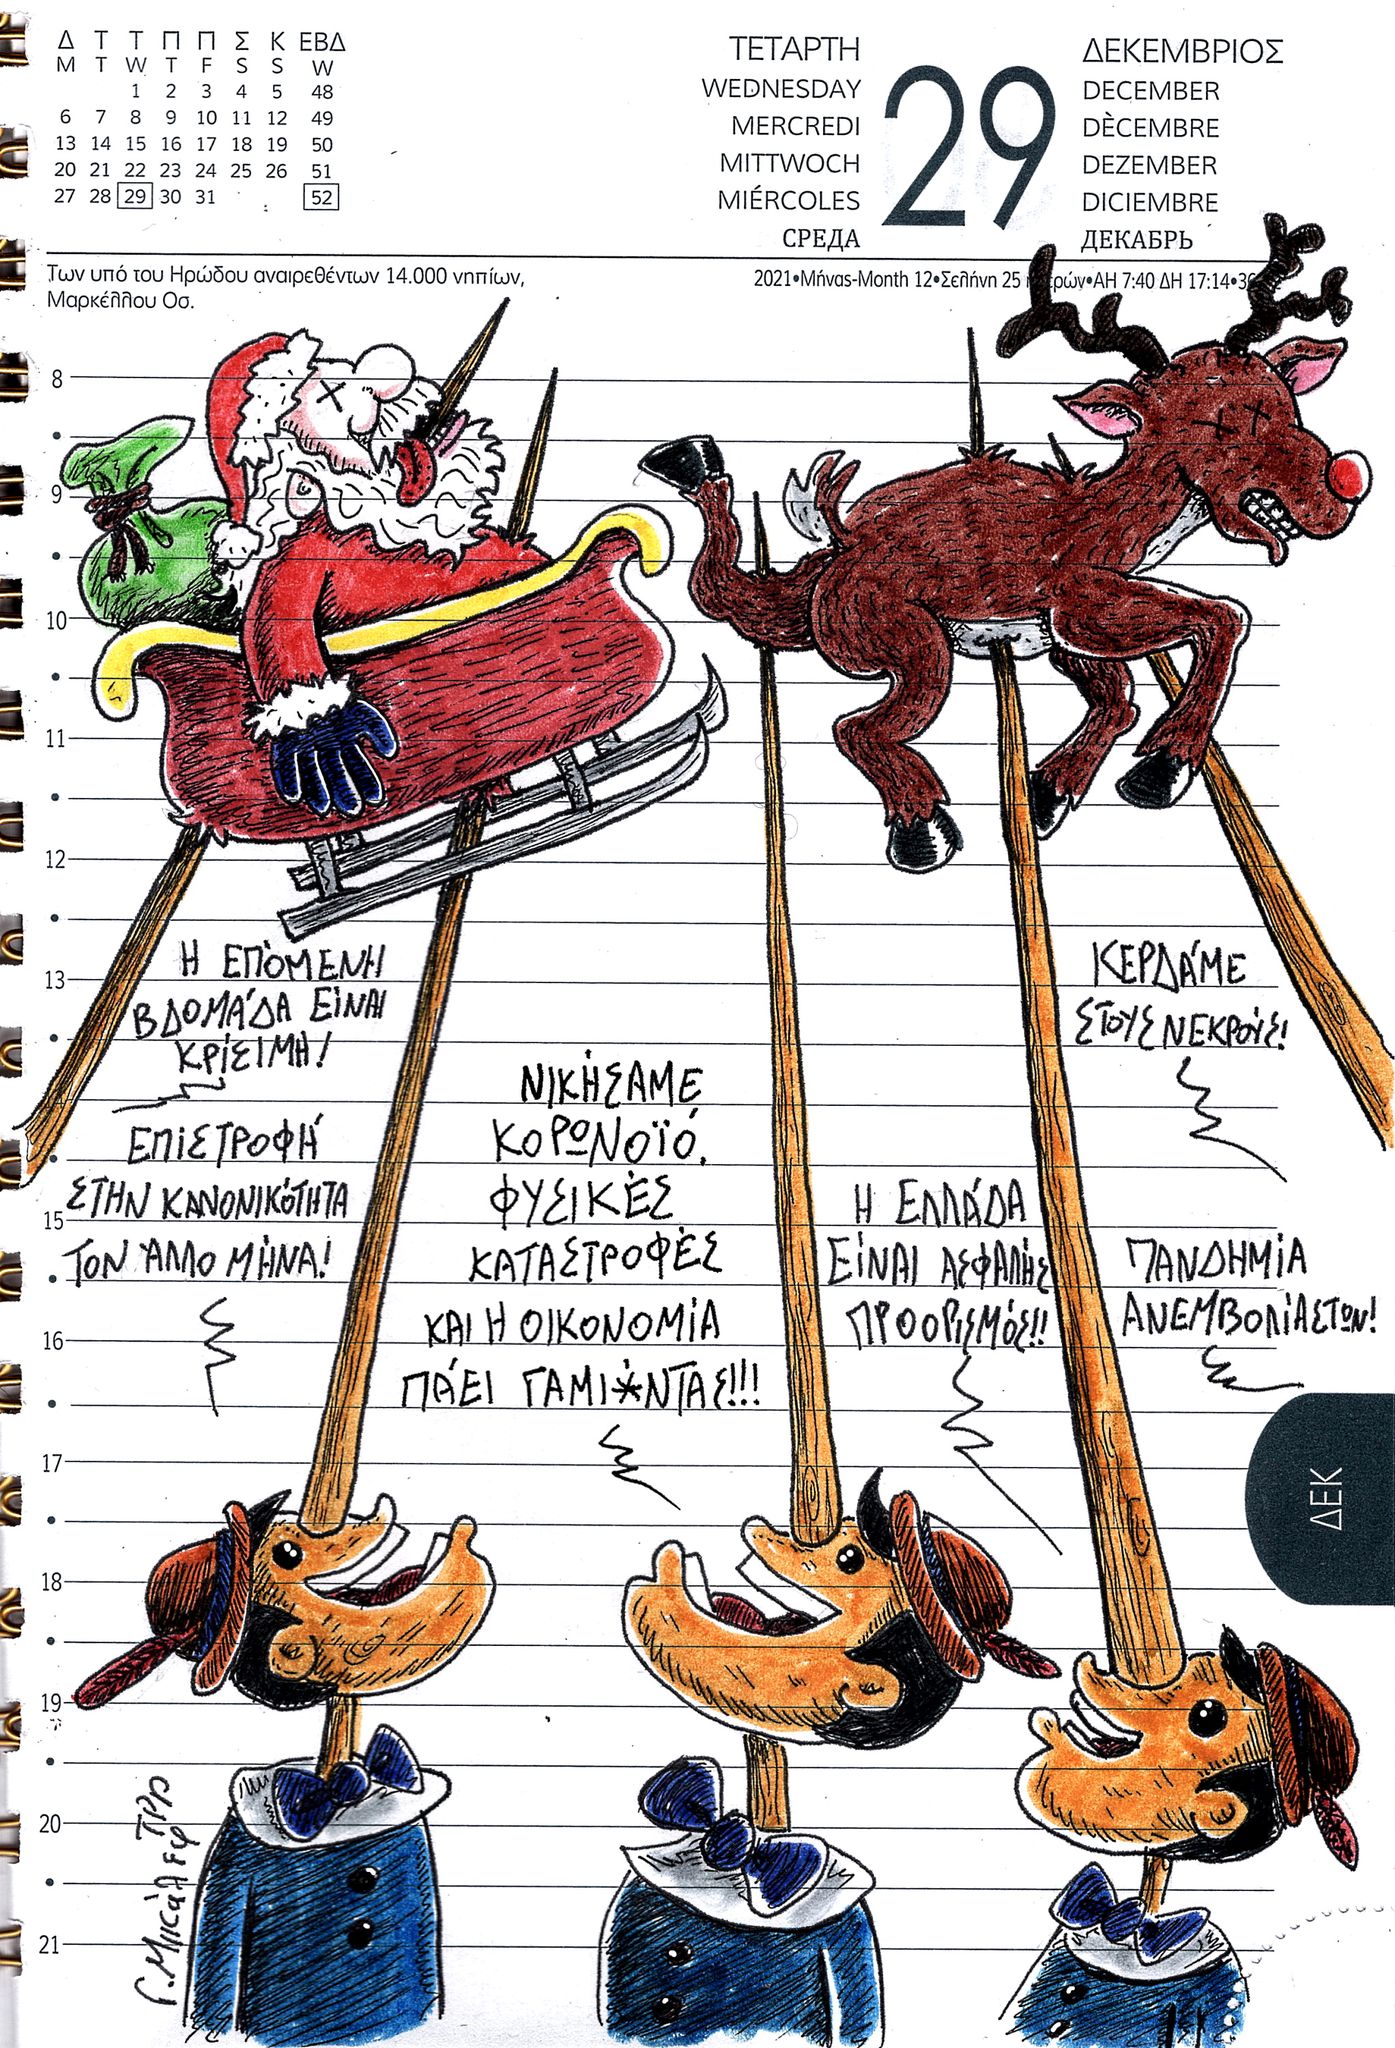 Δ Τ Τ Π Π Σ Κ ΕΒΔ
M T W T F S S W
1 2 3 4 5 48
6 7 8 9 10 11 12 49
13 14 15 16 17 18 19 50
20 21 22 23 24 25 26 51
27 28 29 30 31 52
ΤΕΤΑΡΤΗ
WEDNESDAY
MERCREDI
MITTWOCH
MIÉRCOLES
СРЕДА
29
ΔΕΚΕΜΒΡΙΟΣ
DECEMBER
DÈCEMBRE
DEZEMBER
DICIEMBRE
ДЕКАБРЬ
Των υπό του Ηρώδου αναιρεθέντων 14.000 νηπίων,
Μαρκέλλου Οσ.
2021•Μήνας-Month 12•Σελήνη 25 •ΑΗ 7:40 ΔΗ 17:14•
8
9
10
11
12
13
15
16
17
18
19
20
21
Η ΕΠΌΜΕΝΗ
ΒΔΟΜΆΔΑ ΕΊΝΑΙ
ΚΡΊΣΙΜΗ!
ΕΠΙΣΤΡΟΦΉ
ΣΤΗΝ ΚΑΝΟΝΙΚΌΤΗΤΑ
ΤΟΝ ΆΛΛΟ ΜΉΝΑ!
ΝΙΚΉΣΑΜΕ
ΚΟΡΩΝΟΪΌ,
ΦΥΣΙΚΈΣ
ΚΑΤΑΣΤΡΟΦΈΣ
ΚΑΙ Η ΟΙΚΟΝΟΜΊΑ
ΠΆΕΙ ΓΑΜΙ*ΝΤΑΣ!!!
Η ΕΛΛΆΔΑ
ΕΊΝΑΙ ΑΣΦΑΛΉΣ
ΠΡΟΟΡΙΣΜΌΣ!!
ΚΕΡΔΆΜΕ
ΣΤΟΥΣ ΝΕΚΡΟΎΣ!
ΠΑΝΔΗΜΊΑ
ΑΝΕΜΒΟΛΊΑΣΤΩΝ!
ΔΕΚ